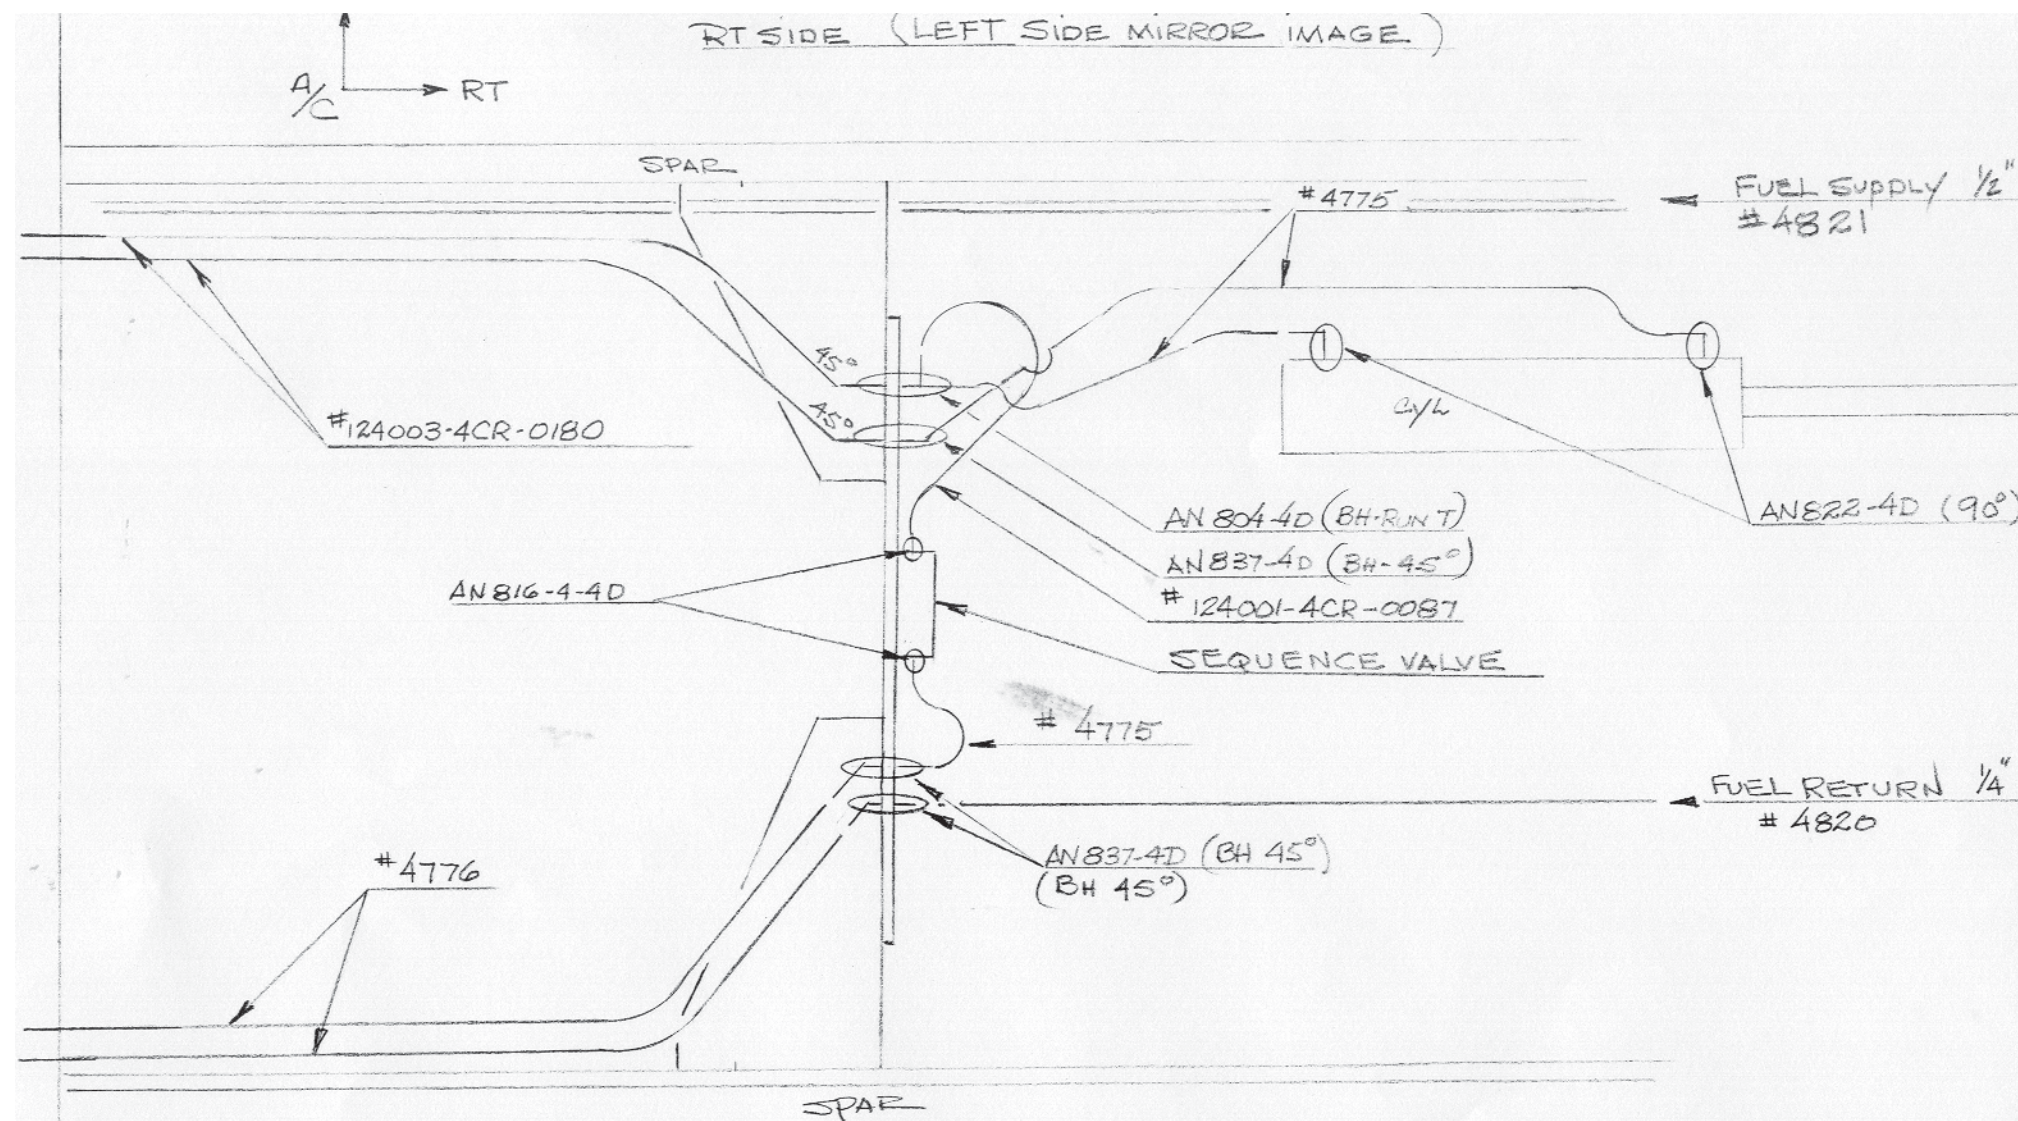 RT SIDE (LEFT SIDE MIRROR IMAGE)
A/C
RT
SPAR
#4775
FUEL SUPPLY 1/2"
#4821
45°
45°
CYL
#124003-4CR-0180
AN804-4D (BH-RUN T)
AN822-4D (90°)
AN837-4D (BH-45°)
AN816-4-4D
#124001-4CR-0087
SEQUENCE VALVE
# 4775
FUEL RETURN 1/4"
# 4820
AN837-4D (BH 45°)
(BH 45°)
#4776
SPAR